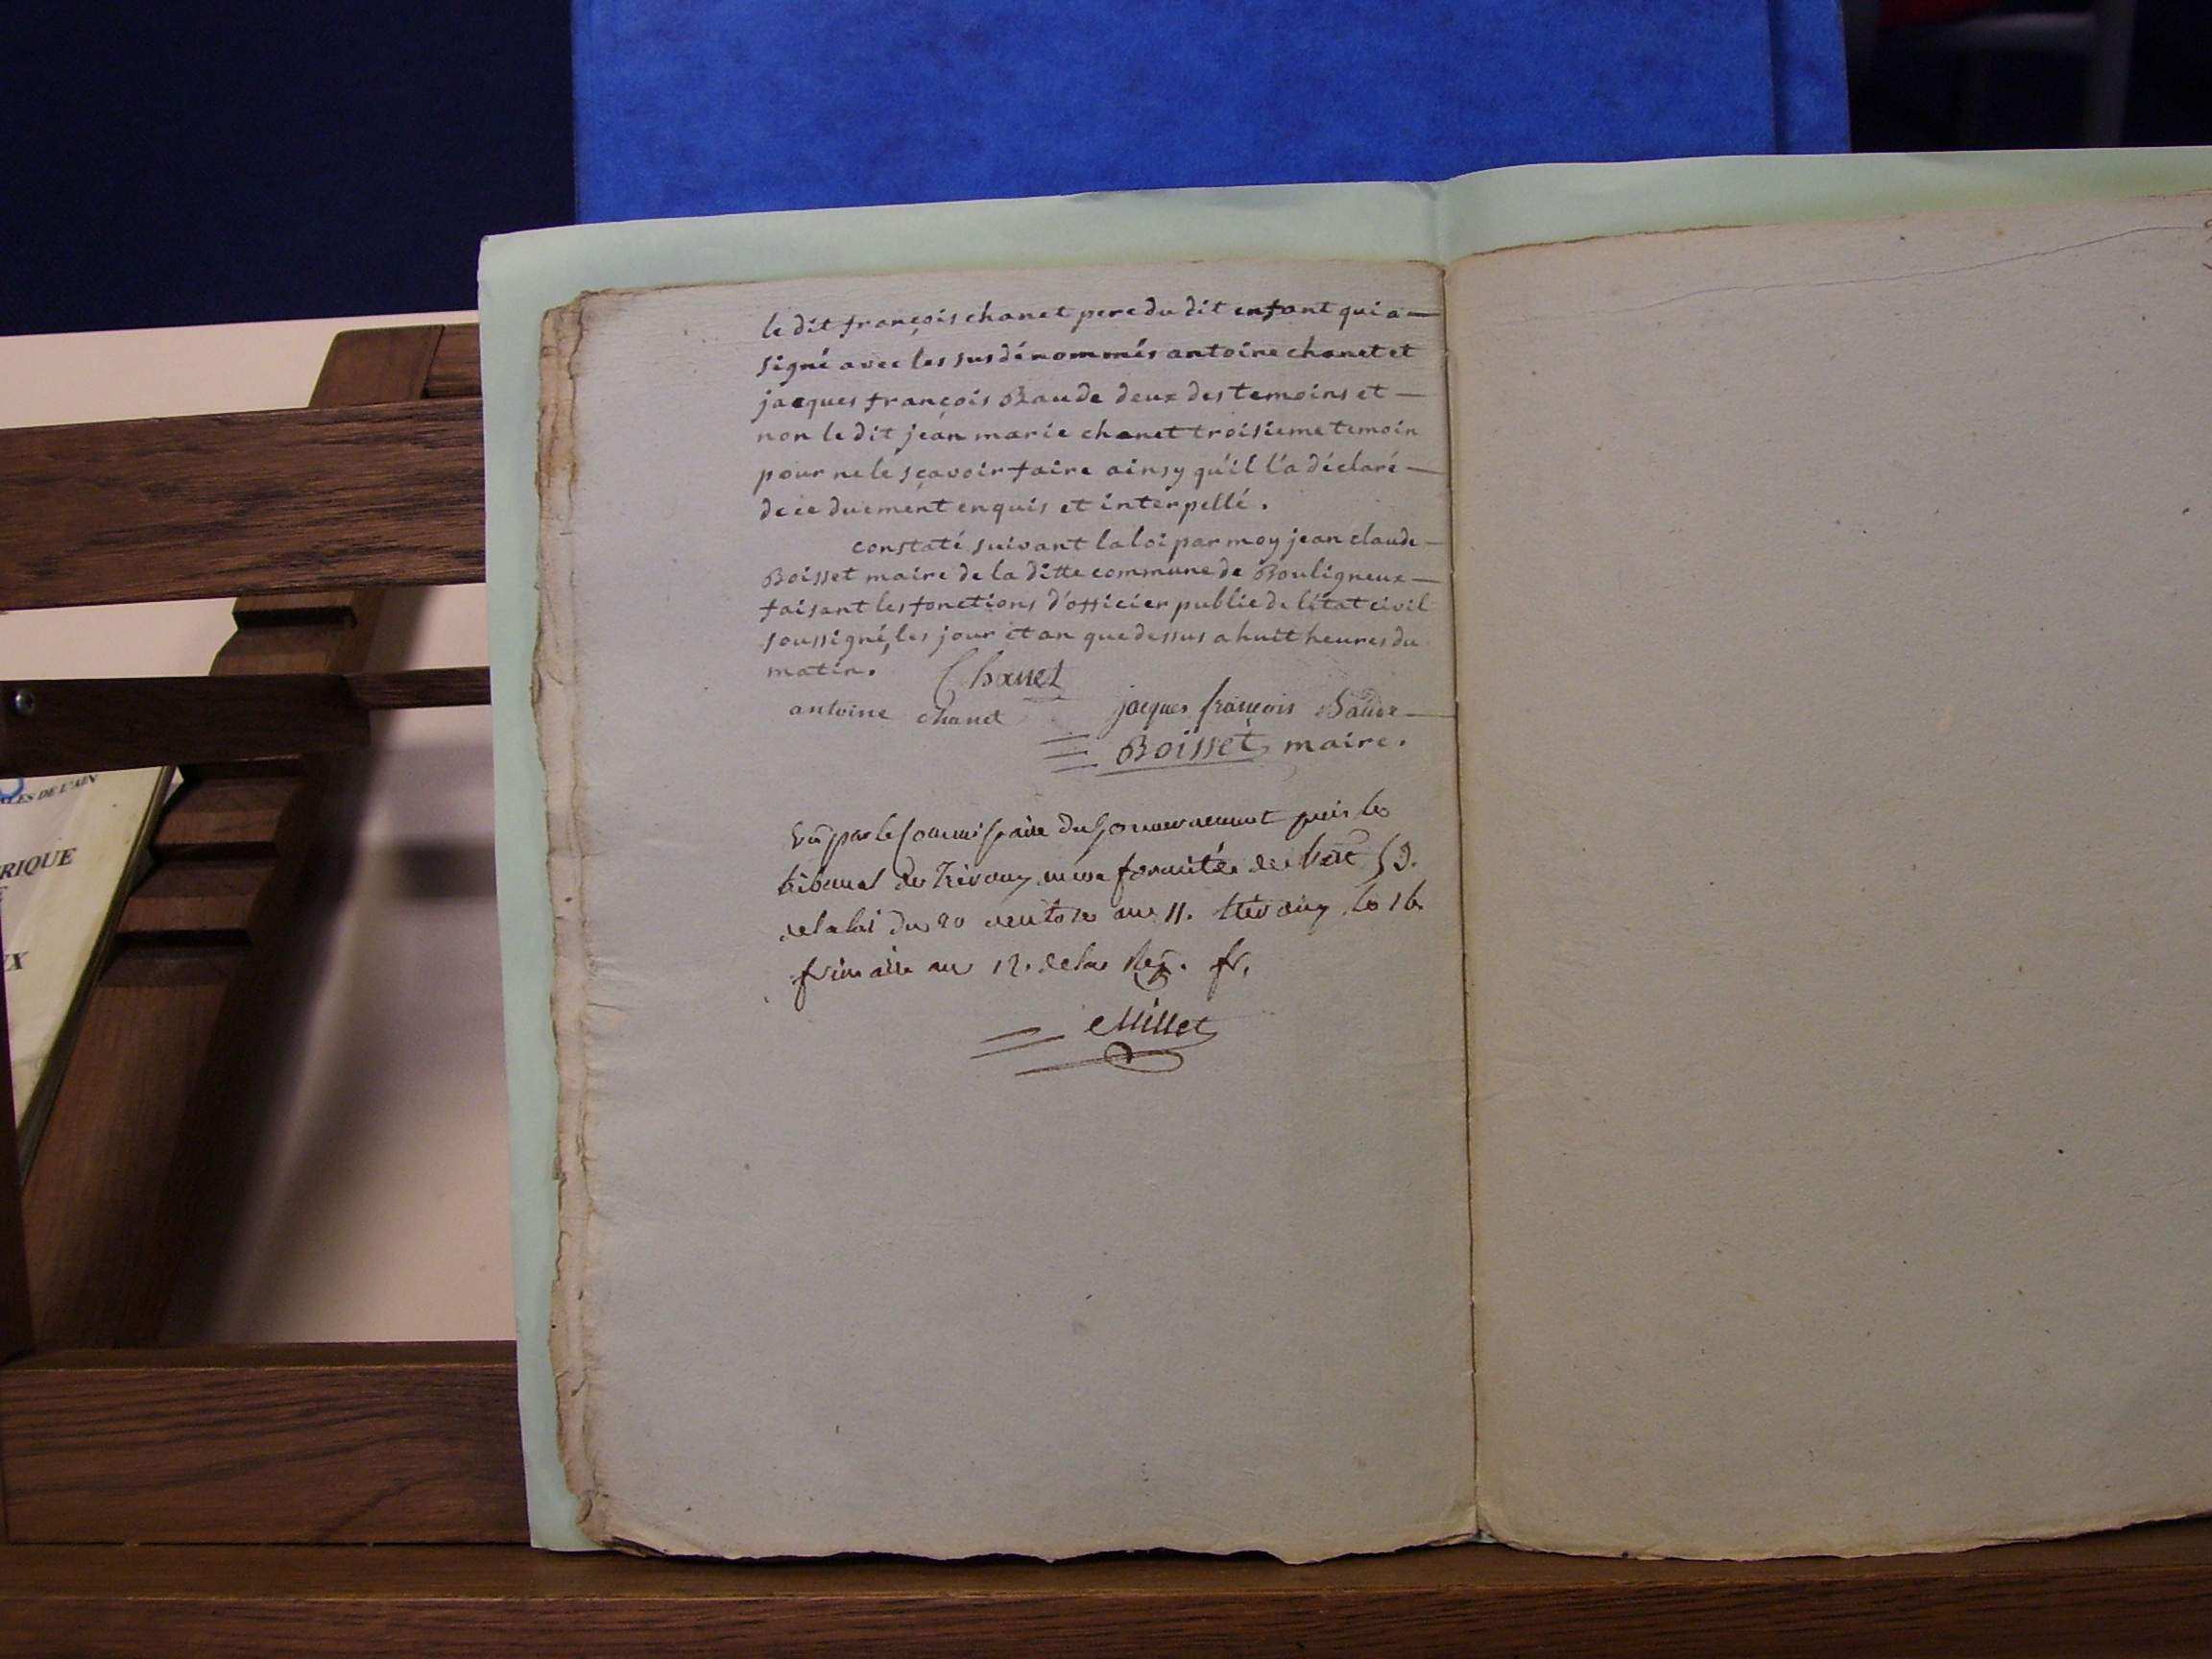 le dit françois chanet pere du dit enfant qui a —
signé avec les sus dénommés antoine chanet et
jacques françois Baude deux des temoins et —
non le dit jean marie chanet troisieme temoin
pour ne le sçavoir faire ainsy qu'il l'a déclaré —
de ce duement enquis et interpellé.
constaté suivant la loi par moy jean claude —
Boisset maire de la ditte commune de Bouligneux —
faisant les fonctions d'officier public de l'état civil
soussigné, les jour et an que dessus a huit heures du
matin. Chanet
antoine chanet jacques françois Baude
Boisset maire.
Vû par le Commissaire du Gouvernement près le
tribunal de Trevoux de l'art 53.
de la loi du 20 ventose an 11. trevoux le 16
frimaire an 12. de la Rep. fr.
Millet
LES DE L'AIN
RIQUE
E
X